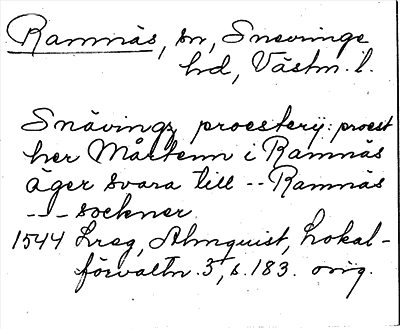 Ramnäs, sn, Snevringe
hd, Västm. l.
Snävings proesterij: proest
her Mårtenn i Ramnäs
äger svara till -- Ramnäs
--- sockner
1544 Lreg, Almquist, Lokal-
förvaltn. 3, s. 183. orig.